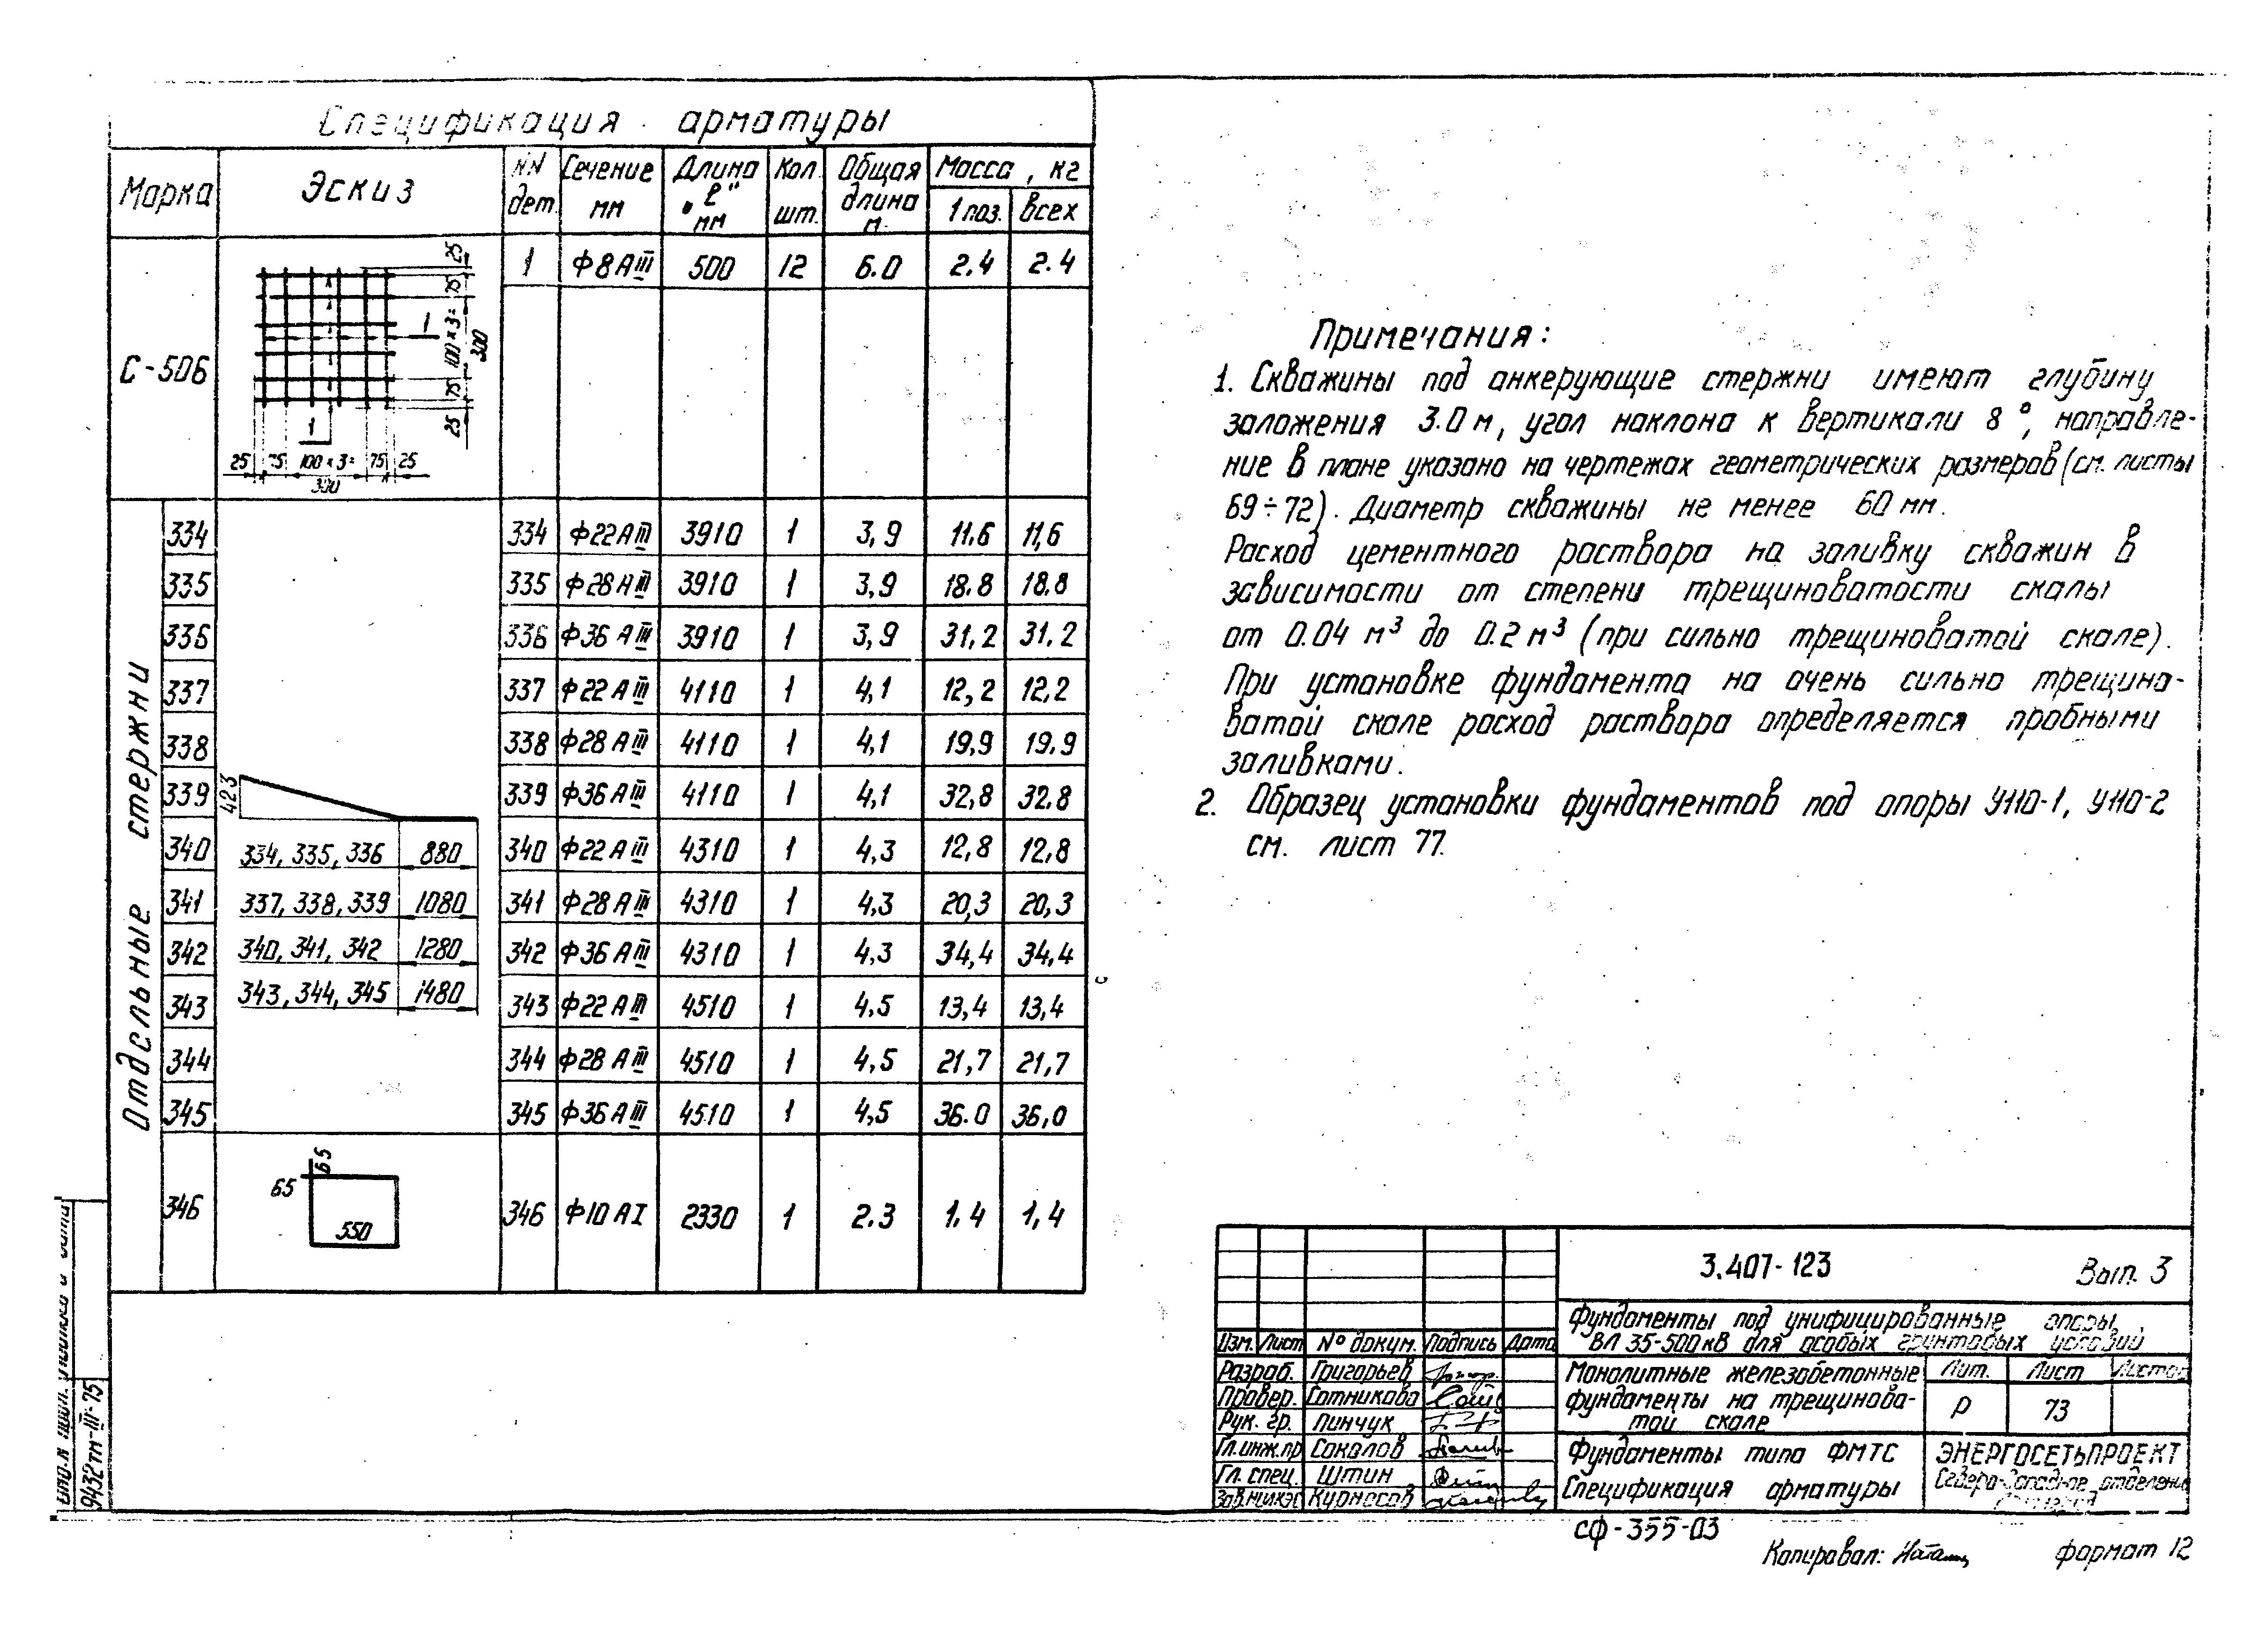 Спецификация арматуры
Марка Эскиз NN дет. Сечение мм Длина "ℓ" мм Кол. шт. Общая длина м. Масса, кг
1 поз. всех
С-506 1 Ф8АIII 500 12 6.0 2.4 2.4
25 75 100×3= 300 75 25
1 1
25 75 100×3= 300 75 25
Отдельные стержни
334 334 Ф22АIII 3910 1 3,9 11.6 11,6
335 335 Ф28АIII 3910 1 3,9 18.8 18.8
336 336 Ф36АIII 3910 1 3,9 31,2 31.2
337 337 Ф22АIII 4110 1 4,1 12,2 12,2
338 338 Ф28АIII 4110 1 4,1 19,9 19.9
339 339 Ф36АIII 4110 1 4,1 32,8 32.8
340 340 Ф22АIII 4310 1 4,3 12,8 12,8
341 341 Ф28АIII 4310 1 4,3 20,3 20,3
342 342 Ф36АIII 4310 1 4,3 34,4 34,4
343 343 Ф22АIII 4510 1 4,5 13,4 13,4
344 344 Ф28АIII 4510 1 4,5 21,7 21,7
345 345 Ф36АIII 4510 1 4,5 36.0 36,0
423
334, 335, 336 880
337, 338, 339 1080
340, 341, 342 1280
343, 344, 345 1480
346 346 Ф10АI 2330 1 2.3 1.4 1,4
65 65
550
Примечания:
1. Скважины под анкерующие стержни имеют глубину
заложения 3.0 м, угол наклона к вертикали 8°, направле-
ние в плане указано на чертежах геометрических размеров (см. листы
69÷72). Диаметр скважины не менее 60 мм.
Расход цементного раствора на заливку скважин в
зависимости от степени трещиноватости скалы
от 0.04 м³ до 0.2 м³ (при сильно трещиноватой скале).
При установке фундамента на очень сильно трещино-
ватой скале расход раствора определяется пробными
заливками.
2. Образец установки фундаментов под опоры У110-1, У110-2
см. лист 77.
3.407-123 Вып. 3
Фундаменты под унифицированные опоры
ВЛ 35-500кВ для особых грунтовых условий
Изм. Лист № докум. Подпись Дата
Разраб. Григорьев
Провер. Сотникова
Рук. гр. Пинчук
Гл.инж.пр Соколов
Гл. спец. Штин
Курносов
Монолитные железобетонные
фундаменты на трещинова-
той скале
Лит. Лист Листов
Р 73
Фундаменты типа ФМТС
Спецификация арматуры
ЭНЕРГОСЕТЬПРОЕКТ
Северо-Западное отделение
9432тм-III-75
СФ-355-03
Копировал: формат 12